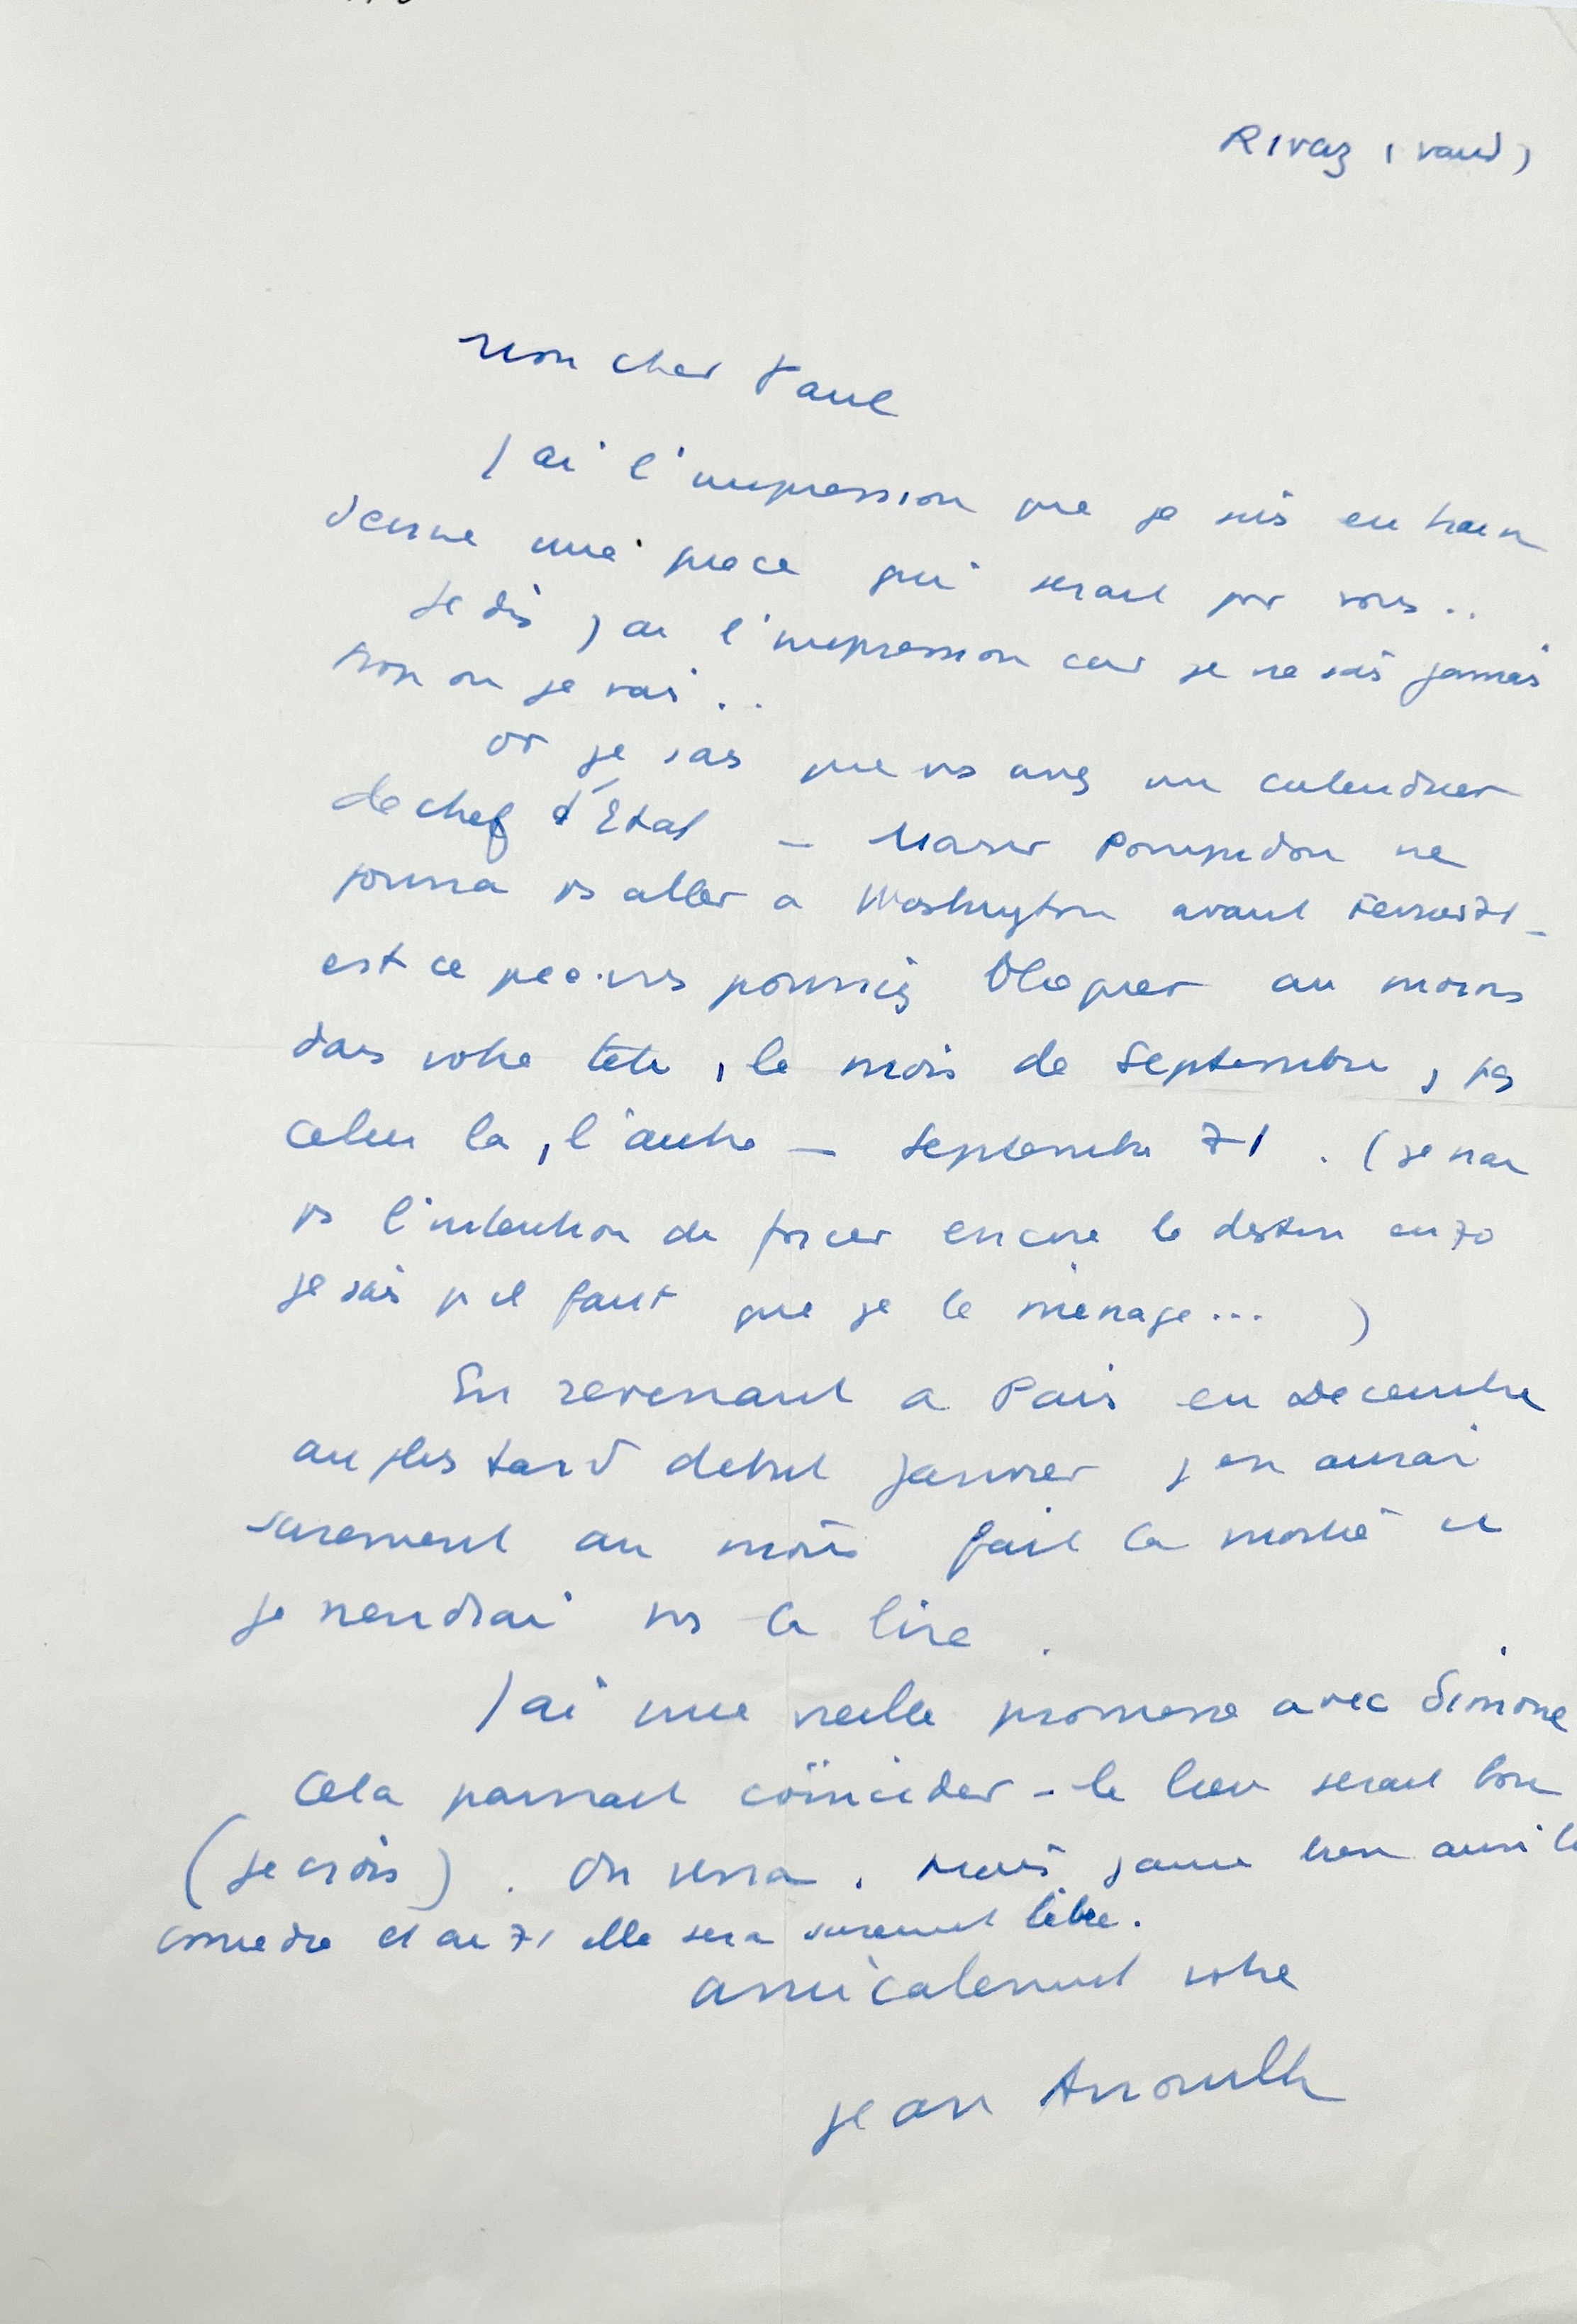 Rivaz (Vaud)
Mon cher Paul
J'ai l'impression que je suis en train
d'ecrire une piece qui serait pr vous..
Je dis j'ai l'impression car je ne sais jamais
trop ou je vais..
Or je sais que vs avez un calendrier
de chef d'Etat - Pompidou ne
pourra ps aller a Washington avant
est ce que vs pourriez bloquer au moins
dans votre tête, le mois de Septembre, ps
celui la, l'autre - Septembre 71. (je n'ai
ps l'intention de forcer encore le destin en 70
je sais qu'il faut que je le ménage... )
En revenant a Paris en Decembre
au plus tard debut Janvier j'en aurai
surement au moins fait la moitié et
je viendrai vs la lire.
J'ai une vieille promesse avec Simone
Cela pourrait coïncider - le lieu serait bon
(je crois). On verra. Mais j'aime bien aussi la
comedie et en 71 elle sera surement libre.
amicalement votre
Jean Anouilh